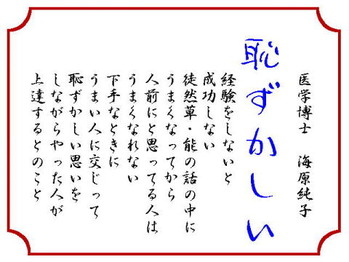 医学博士　海原純子
恥ずかしい
経験をしないと
成功しない
徒然草・能の話の中に
うまくなってから
人前にと思ってる人は
うまくなれない
下手なときに
うまい人に交じって
恥ずかしい思いを
しながらやった人が
上達するとのこと